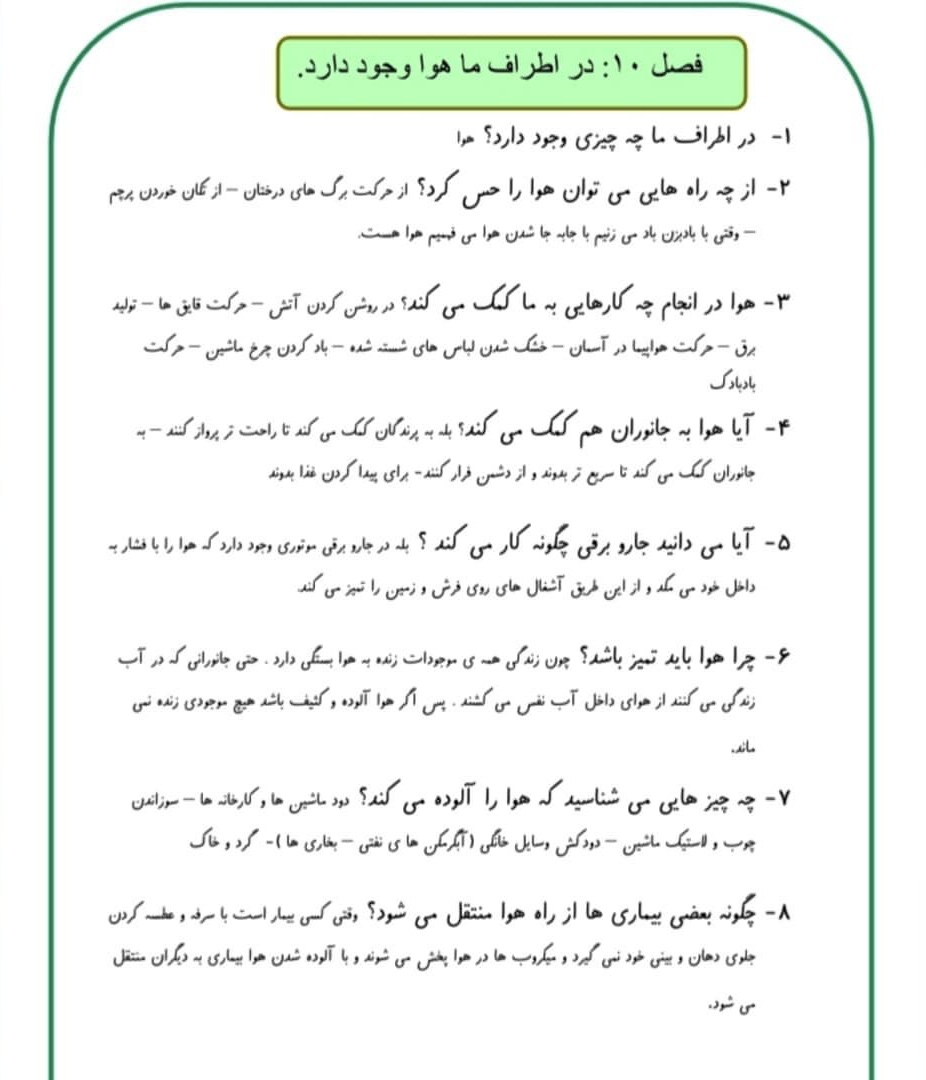 فصل ۱۰: در اطراف ما هوا وجود دارد.
۱- در اطراف ما چه چیزی وجود دارد؟ هوا
۲- از چه راه هایی می توان هوا را حس کرد؟ از حرکت برگ های درختان – از تکان خوردن پرچم
– وقتی با بادبزن باد می زنیم با جابه جا شدن هوا می فهمیم هوا هست.
۳- هوا در انجام چه کارهایی به ما کمک می کند؟ در روشن کردن آتش – حرکت قایق ها – تولید
برق – حرکت هواپیما در آسمان – خشک شدن لباس های شسته شده – باد کردن چرخ ماشین – حرکت
بادبادک
۴- آیا هوا به جانوران هم کمک می کند؟ بله به پرندگان کمک می کند تا راحت تر پرواز کنند – به
جانوران کمک می کند تا سریع تر بدوند و از دشمن فرار کنند- برای پیدا کردن غذا بدوند
۵- آیا می دانید جارو برقی چگونه کار می کند ؟ بله در جارو برقی موتوری وجود دارد که هوا را با فشار به
داخل خود می مکد و از این طریق آشغال های روی فرش و زمین را تمیز می کند.
۶- چرا هوا باید تمیز باشد؟ چون زندگی همه ی موجودات زنده به هوا بستگی دارد . حتی جانورانی که در آب
زندگی می کنند از هوای داخل آب نفس می کشند . پس اگر هوا آلوده و کثیف باشد هیچ موجودی زنده نمی
ماند.
۷- چه چیز هایی می شناسید که هوا را آلوده می کند؟ دود ماشین ها و کارخانه ها – سوزاندن
چوب و لاستیک ماشین – دودکش وسایل خانگی (آبگرمکن ها ی نفتی – بخاری ها )- گرد و خاک
۸- چگونه بعضی بیماری ها از راه هوا منتقل می شود؟ وقتی کسی بیمار است با سرفه و عطسه کردن
جلوی دهان و بینی خود نمی گیرد و میکروب ها در هوا پخش می شوند و با آلوده شدن هوا بیماری به دیگران منتقل
می شود.